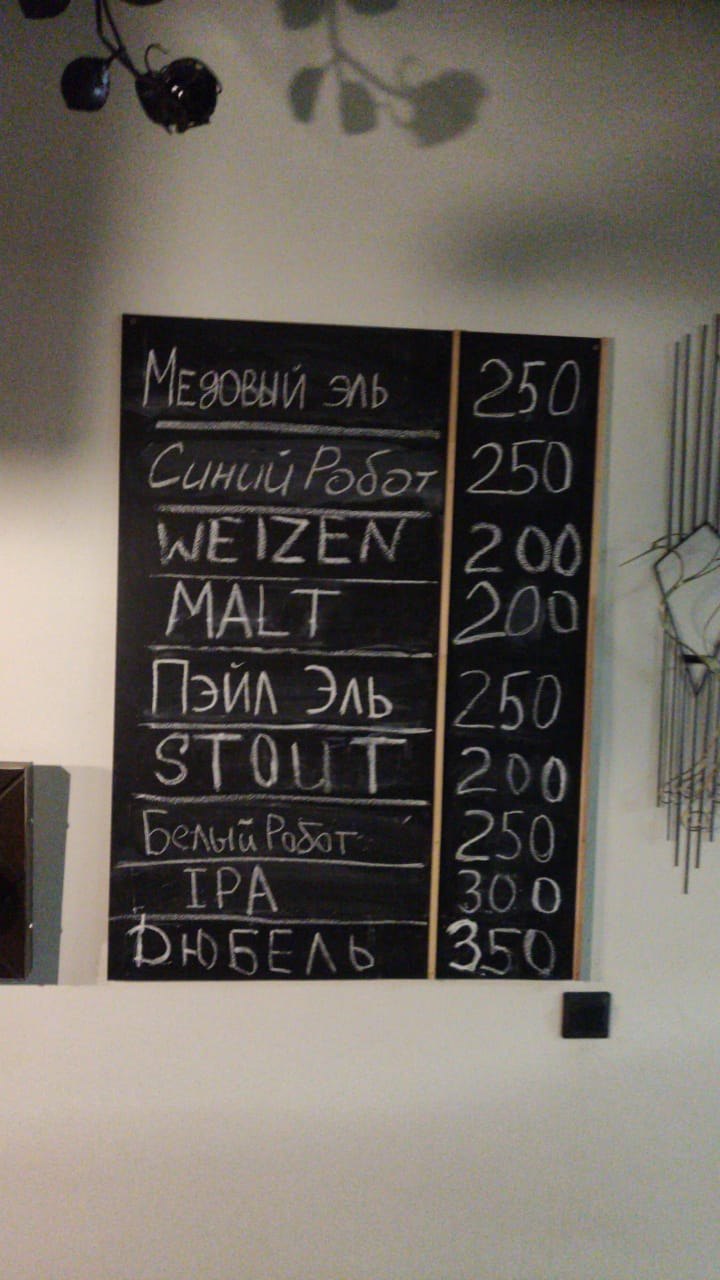 Медовый эль 250
Синий Робот 250
WEIZEN 200
MALT 200
Пэйл Эль 250
STOUT 200
Белый Робот 250
IPA 300
ДЮБЕЛЬ 350